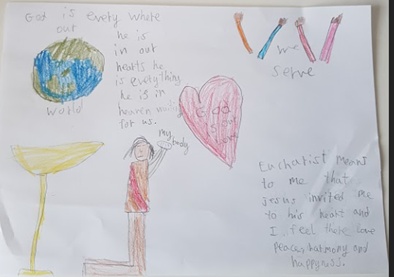 God is every where
our
World
he is
in our
hearts he
is everything
he is in
heaven
for us.
we
Serve
God
my
body
Eucharist means
to me that
Jesus invited me
to his heart and
I feel there love
peace, harmony and
happyness.